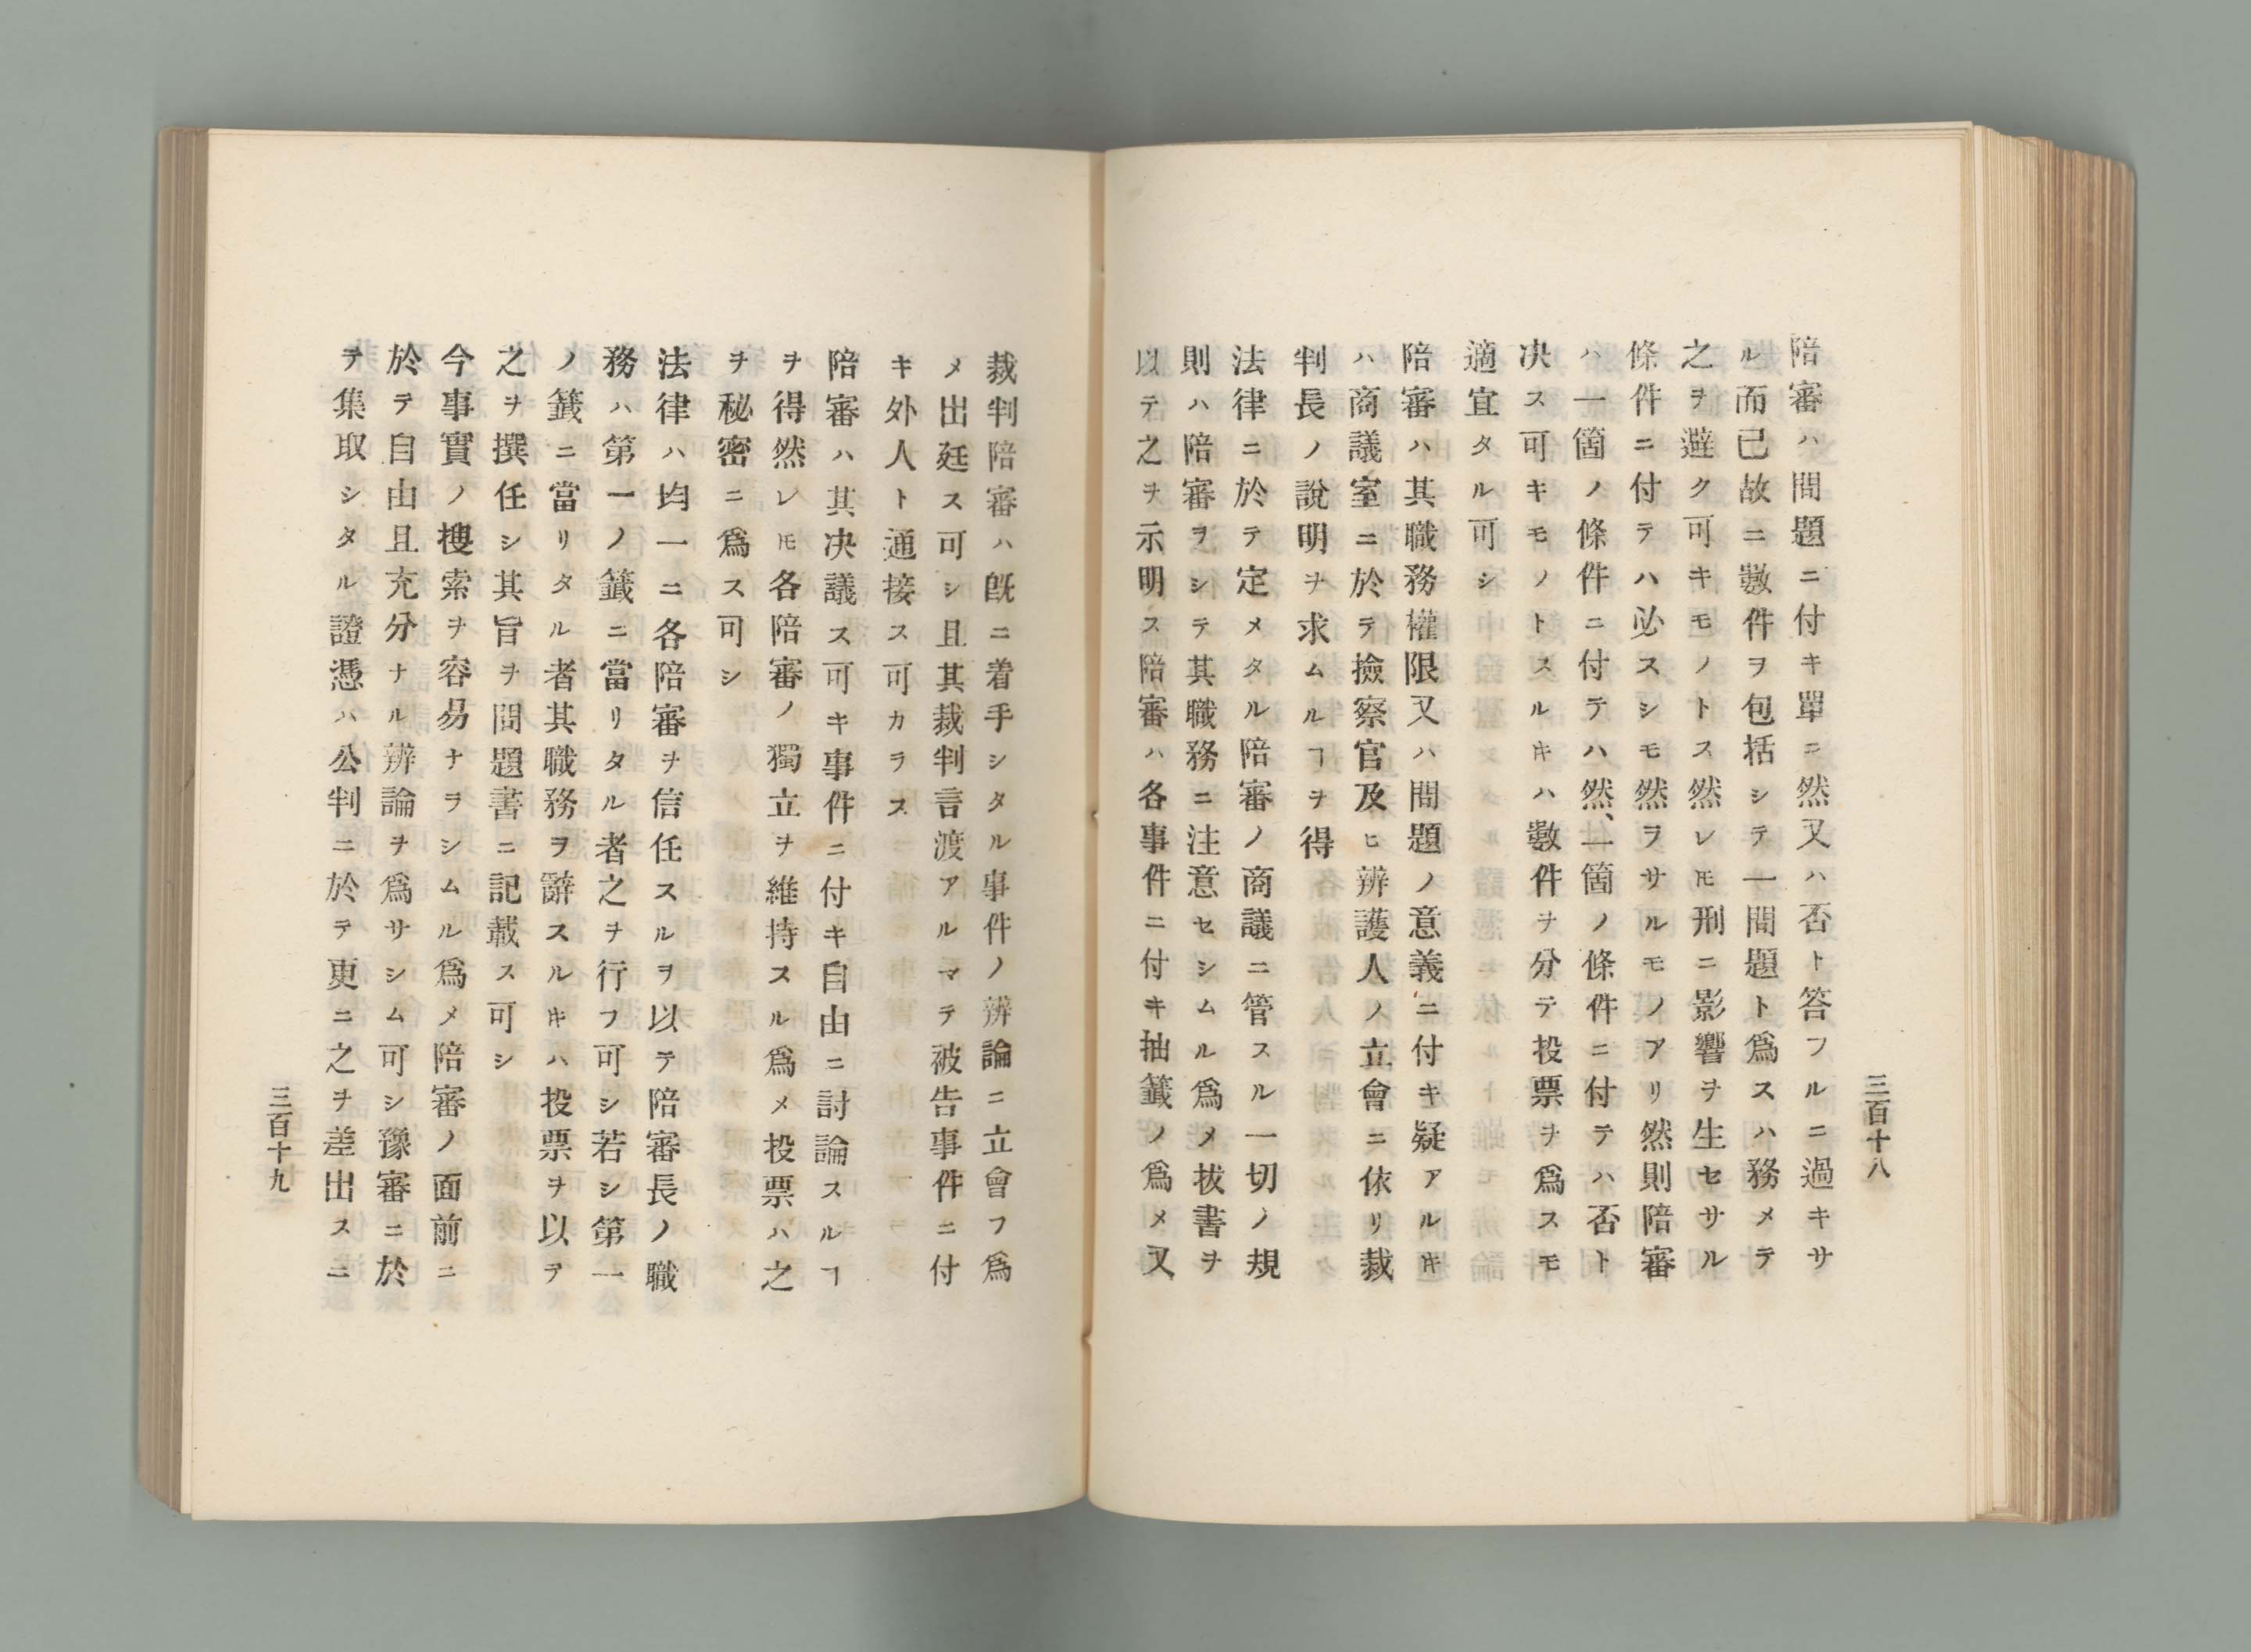 三百十八
陪審ハ問題ニ付キ單ニ然又ハ否ト答フルニ過キサ
ル而已故ニ數件ヲ包括シテ一問題ト爲スハ務メテ
之ヲ避ク可キモノトス然レ𪜈刑ニ影響ヲ生セサル
條件ニ付テハ必スシモ然ラサルモノアリ然則陪審
ハ一箇ノ條件ニ付テハ然、一箇ノ條件ニ付テハ否ト
决ス可キモノトスルキハ數件ヲ分テ投票ヲ爲スモ
適宜タル可シ
陪審ハ其職務權限又ハ問題ノ意義ニ付キ疑アルキ
ハ商議室ニ於テ撿察官及ヒ辨護人ノ立會ニ依リ裁
判長ノ說明ヲ求ムルヿヲ得
法律ニ於テ定メタル陪審ノ商議ニ管スル一切ノ規
則ハ陪審ヲシテ其職務ニ注意セシムル爲メ拔書ヲ
以テ之ヲ示明ス陪審ハ各事件ニ付キ抽籤ノ爲メ又
裁判陪審ハ旣ニ着手シタル事件ノ辨論ニ立會フ爲
メ出廷ス可シ且其裁判言渡アルマテ被告事件ニ付
キ外人ト通接ス可カラス
陪審ハ其决議ス可キ事件ニ付キ自由ニ討論スルヿ
ヲ得然レ𪜈各陪審ノ獨立ヲ維持スル爲メ投票ハ之
ヲ秘密ニ爲ス可シ
法律ハ均一ニ各陪審ヲ信任スルヲ以テ陪審長ノ職
務ハ第一ノ籤ニ當リタル者之ヲ行フ可シ若シ第一
ノ籤ニ當リタル者其職務ヲ辭スルキハ投票ヲ以テ
之ヲ撰任シ其旨ヲ問題書ニ記載ス可シ
今事實ノ搜索ヲ容易ナラシムル爲メ陪審ノ面前ニ
於テ自由且充分ナル辨論ヲ爲サシム可シ豫審ニ於
テ集取シタル證憑ハ公判ニ於テ更ニ之ヲ差出スニ
三百十九